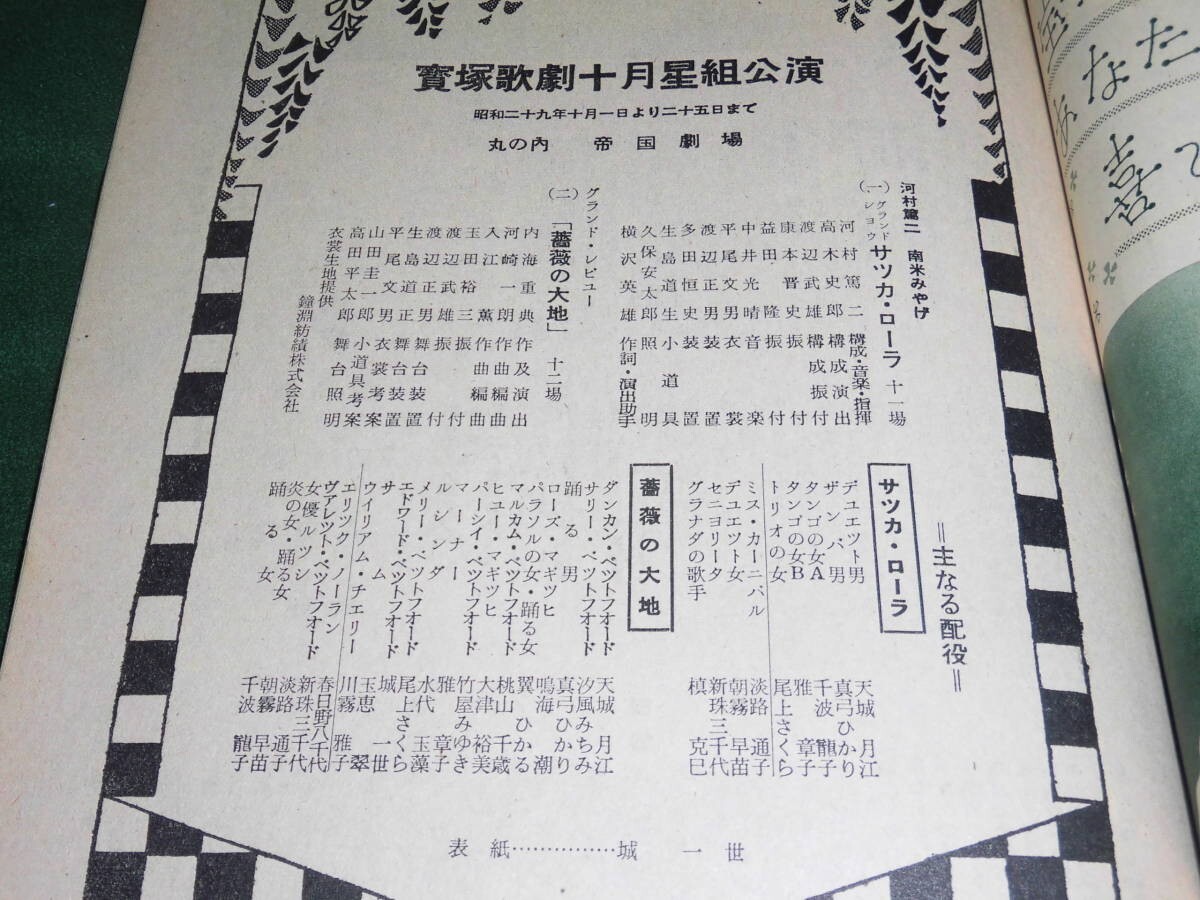 寳塚歌劇十月星組公演
昭和二十九年十月一日より二十五日まで
丸の內 帝国劇場
河村篤二 南米みやげ
(一) グランド・シヨウ サツカ・ローラ 十一場
河村篤二 構成・音楽・指揮
高木史郎 構成演出
渡辺武雄 構成振付
康本晋史 振付
益田隆 振付
中井光晴 音楽
平尾文男 衣裳
渡辺正男 装置
多田恒史 装置
生島道生 小道具
久保安太郎 照明
横沢英雄 作詞・演出助手
グランド・レビユー
(二) 「薔薇の大地」 十二場
内海重典 作及演出
河崎一朗 作曲編曲
入江薫 作曲編曲
玉田裕三 振付
渡辺武雄 振付
渡辺正男 舞台装置
生島道正 舞台装置
平尾文男 衣裳考案
山田圭一郎 小道具考案
高田平太郎 舞台照明
衣裳生地提供 鐘淵紡績株式会社
=主なる配役=
サツカ・ローラ
デユエツト男 天城月江
ザンバ男 真弓ひかり
タンゴの女A 千波龍子
タンゴの女B 雅章子
トリオの女 尾上さくら
ミス・カーニバル 淡路通子
デユエツト女 朝霧早苗
セニヨリータ 新珠三千代
グラナダの歌手 槙克巳
薔薇の大地
ダンカン・ベツトフオード 天城月江
サリー・ベツトフオード 汐風みちみ
踊る男 真弓ひかり
ローズ・マギツヒ 鳴海潮
パラソルの女・踊る女 翼ひかる
マルカム・ベツトフオード 桃山千歳
ヒユー・マギツヒ 大津裕美
パーシイ・ベツトフオード 竹屋みゆき
マーナー 雅章子
ルシンダ 水代玉藻
メリー・ベツトフオード 尾上さくら
エドワード・ベツトフオード 城一世
サム 玉恵翠
ウイリアム・チエリー 川霧雅子
エリツク・ノーラン 春日野八千代
ヴアレツト・ベツトフオード 新珠三千代
女優ルツシイ 淡路通子
炎の女・踊る女 朝霧早苗
踊る女 千波龍子
表紙……………城一世
なた
喜